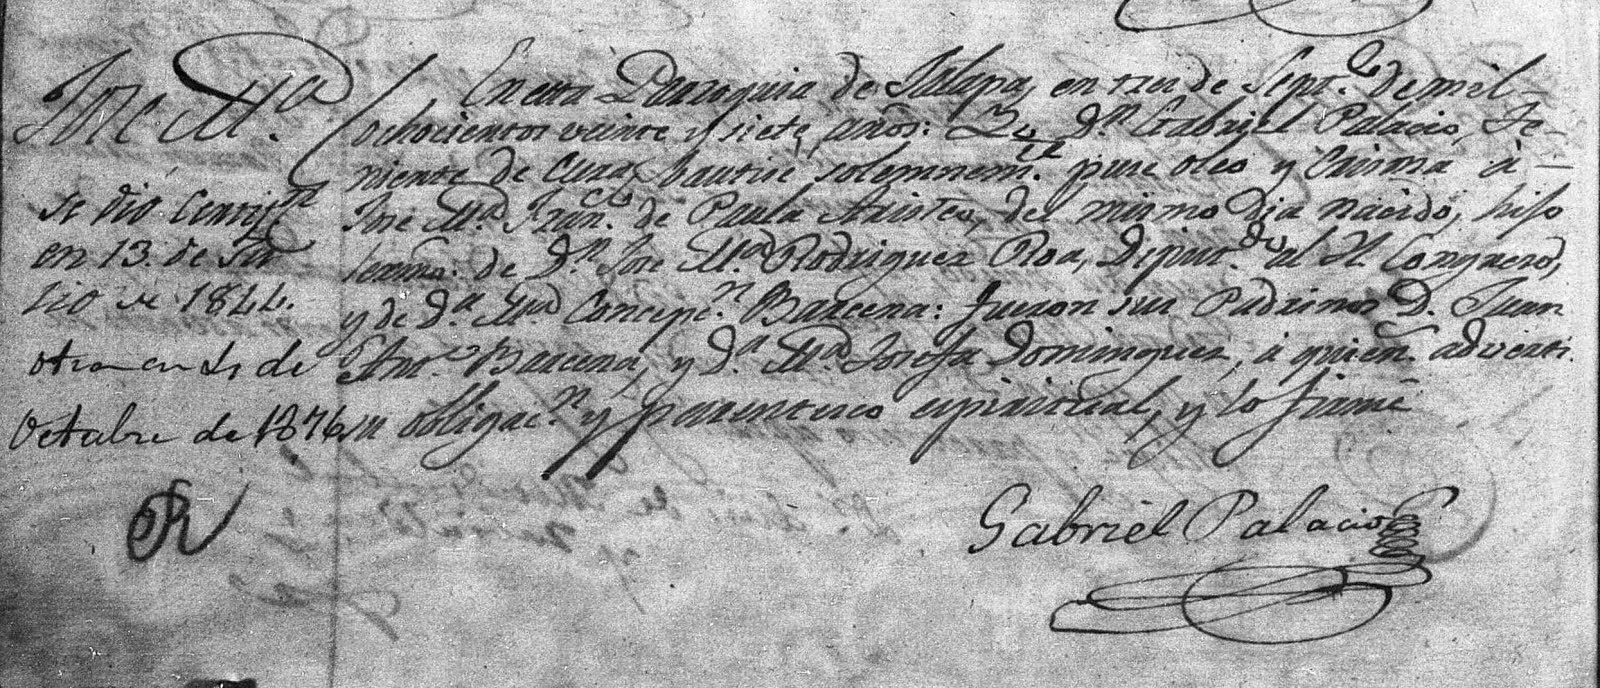 Jose M.ª
se dio Certif.n
en 13. de Ju
lio de 1844.
otra en 4 de
Octubre de 1876
En esta Parroquia de Jalapa, en tres de Sept.e de mil
ochocientos veinte y siete, años: Yo D.n Gabriel Palacio, Te-
niente de Cura, bautisé solemnem.te puse oleo y Crisma á
José M.ª Fran.co de Paula Aristeo, del mismo dia nacido, hijo
lexmo. de D.n José M.ª Rodriguez Roa, Diput.do al H. Congreso,
y de D.ª M.ª Concepc.n Barcena: fueron sus Padrinos D. Juan
Ant.o Barcena, y D.ª M.ª Josefa Dominguez, á quien.s adverti
su obligac.n y parentesco espiritual, y lo firmé
Gabriel Palacio